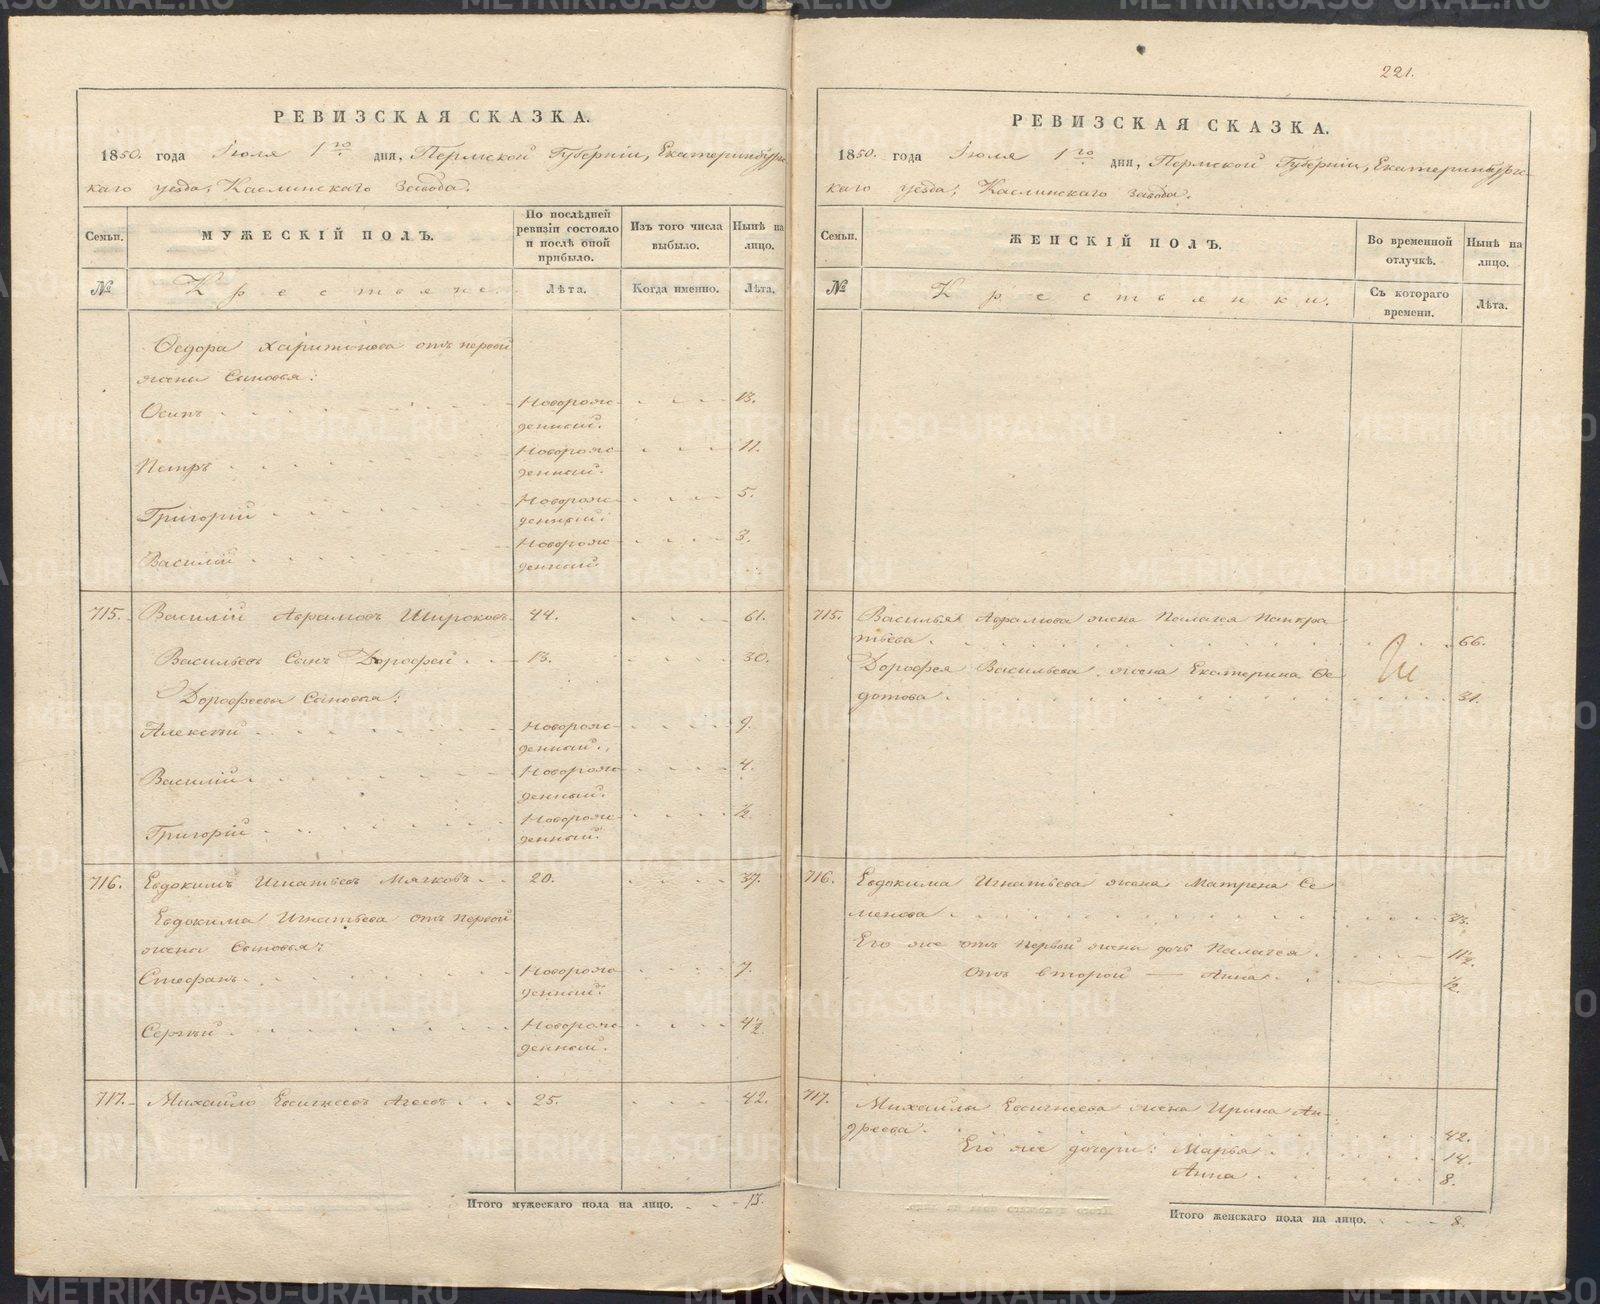 221.
РЕВИЗСКАЯ СКАЗКА.
1850. года Июля 1го дня, Пермской Губерніи, Екатеринбургс-
каго уезда, Каслинскаго завода.
Семьи. МУЖЕСКІЙ ПОЛЪ. По послѣдней ревизіи состояло и послѣ оной прибыло. Изъ того числа выбыло. Нынѣ на лицо.
№ Крестьяне. Лѣта. Когда именно. Лѣта.
Ѳедора Харитонова отъ первой
жены Сыновья:
Осипъ Новорож-
денный. 13.
Петръ Новорож-
денный. 11.
Григорій Новорож-
денный. 5.
Василій Новорож-
денный. 3.
715. Василій Аврамовъ Широковъ 44. 61.
Васильевъ Сынъ Дорофей 13. 30.
Дорофеевы Сыновья:
Алексѣй Новорож-
денный. 9.
Василій Новорож-
денный. 4.
Григорій Новорож-
денный. ½.
716. Евдокимъ Игнатьевъ Мягковъ 20. 37.
Евдокима Игнатьева отъ первой
жены Сыновья
Стефанъ Новорож-
денный. 7.
Сергѣй Новорож-
денный. 4½.
717. Михайло Евсигнеевъ Агеевъ 25. 42.
Итого мужескаго пола на лицо. 13.
РЕВИЗСКАЯ СКАЗКА.
1850. года Июля 1го дня, Пермской Губерніи, Екатеринбургс-
каго уезда, Каслинскаго завода.
Семьи. ЖЕНСКІЙ ПОЛЪ. Во временной отлучкѣ. Нынѣ на лицо.
№ Крестьянки. Съ котораго времени. Лѣта.
715. Василья Аврамова жена Палагея Панкра
тьева. 66.
Дорофея Васильева жена Екатерина Ѳе
дотова. 31.
716. Евдокима Игнатьева жена Матрена Се
менова 35.
Его же отъ первой жены дочь Палагея. 11½.
Отъ второй — Анна. ½.
717. Михайлы Евсигнеева жена Ирина Ан-
дреева. 42.
Его же дочери: Марья 14.
Анна 8.
Итого женскаго пола на лицо. 8.
METRIKI.GASO-URAL.RU